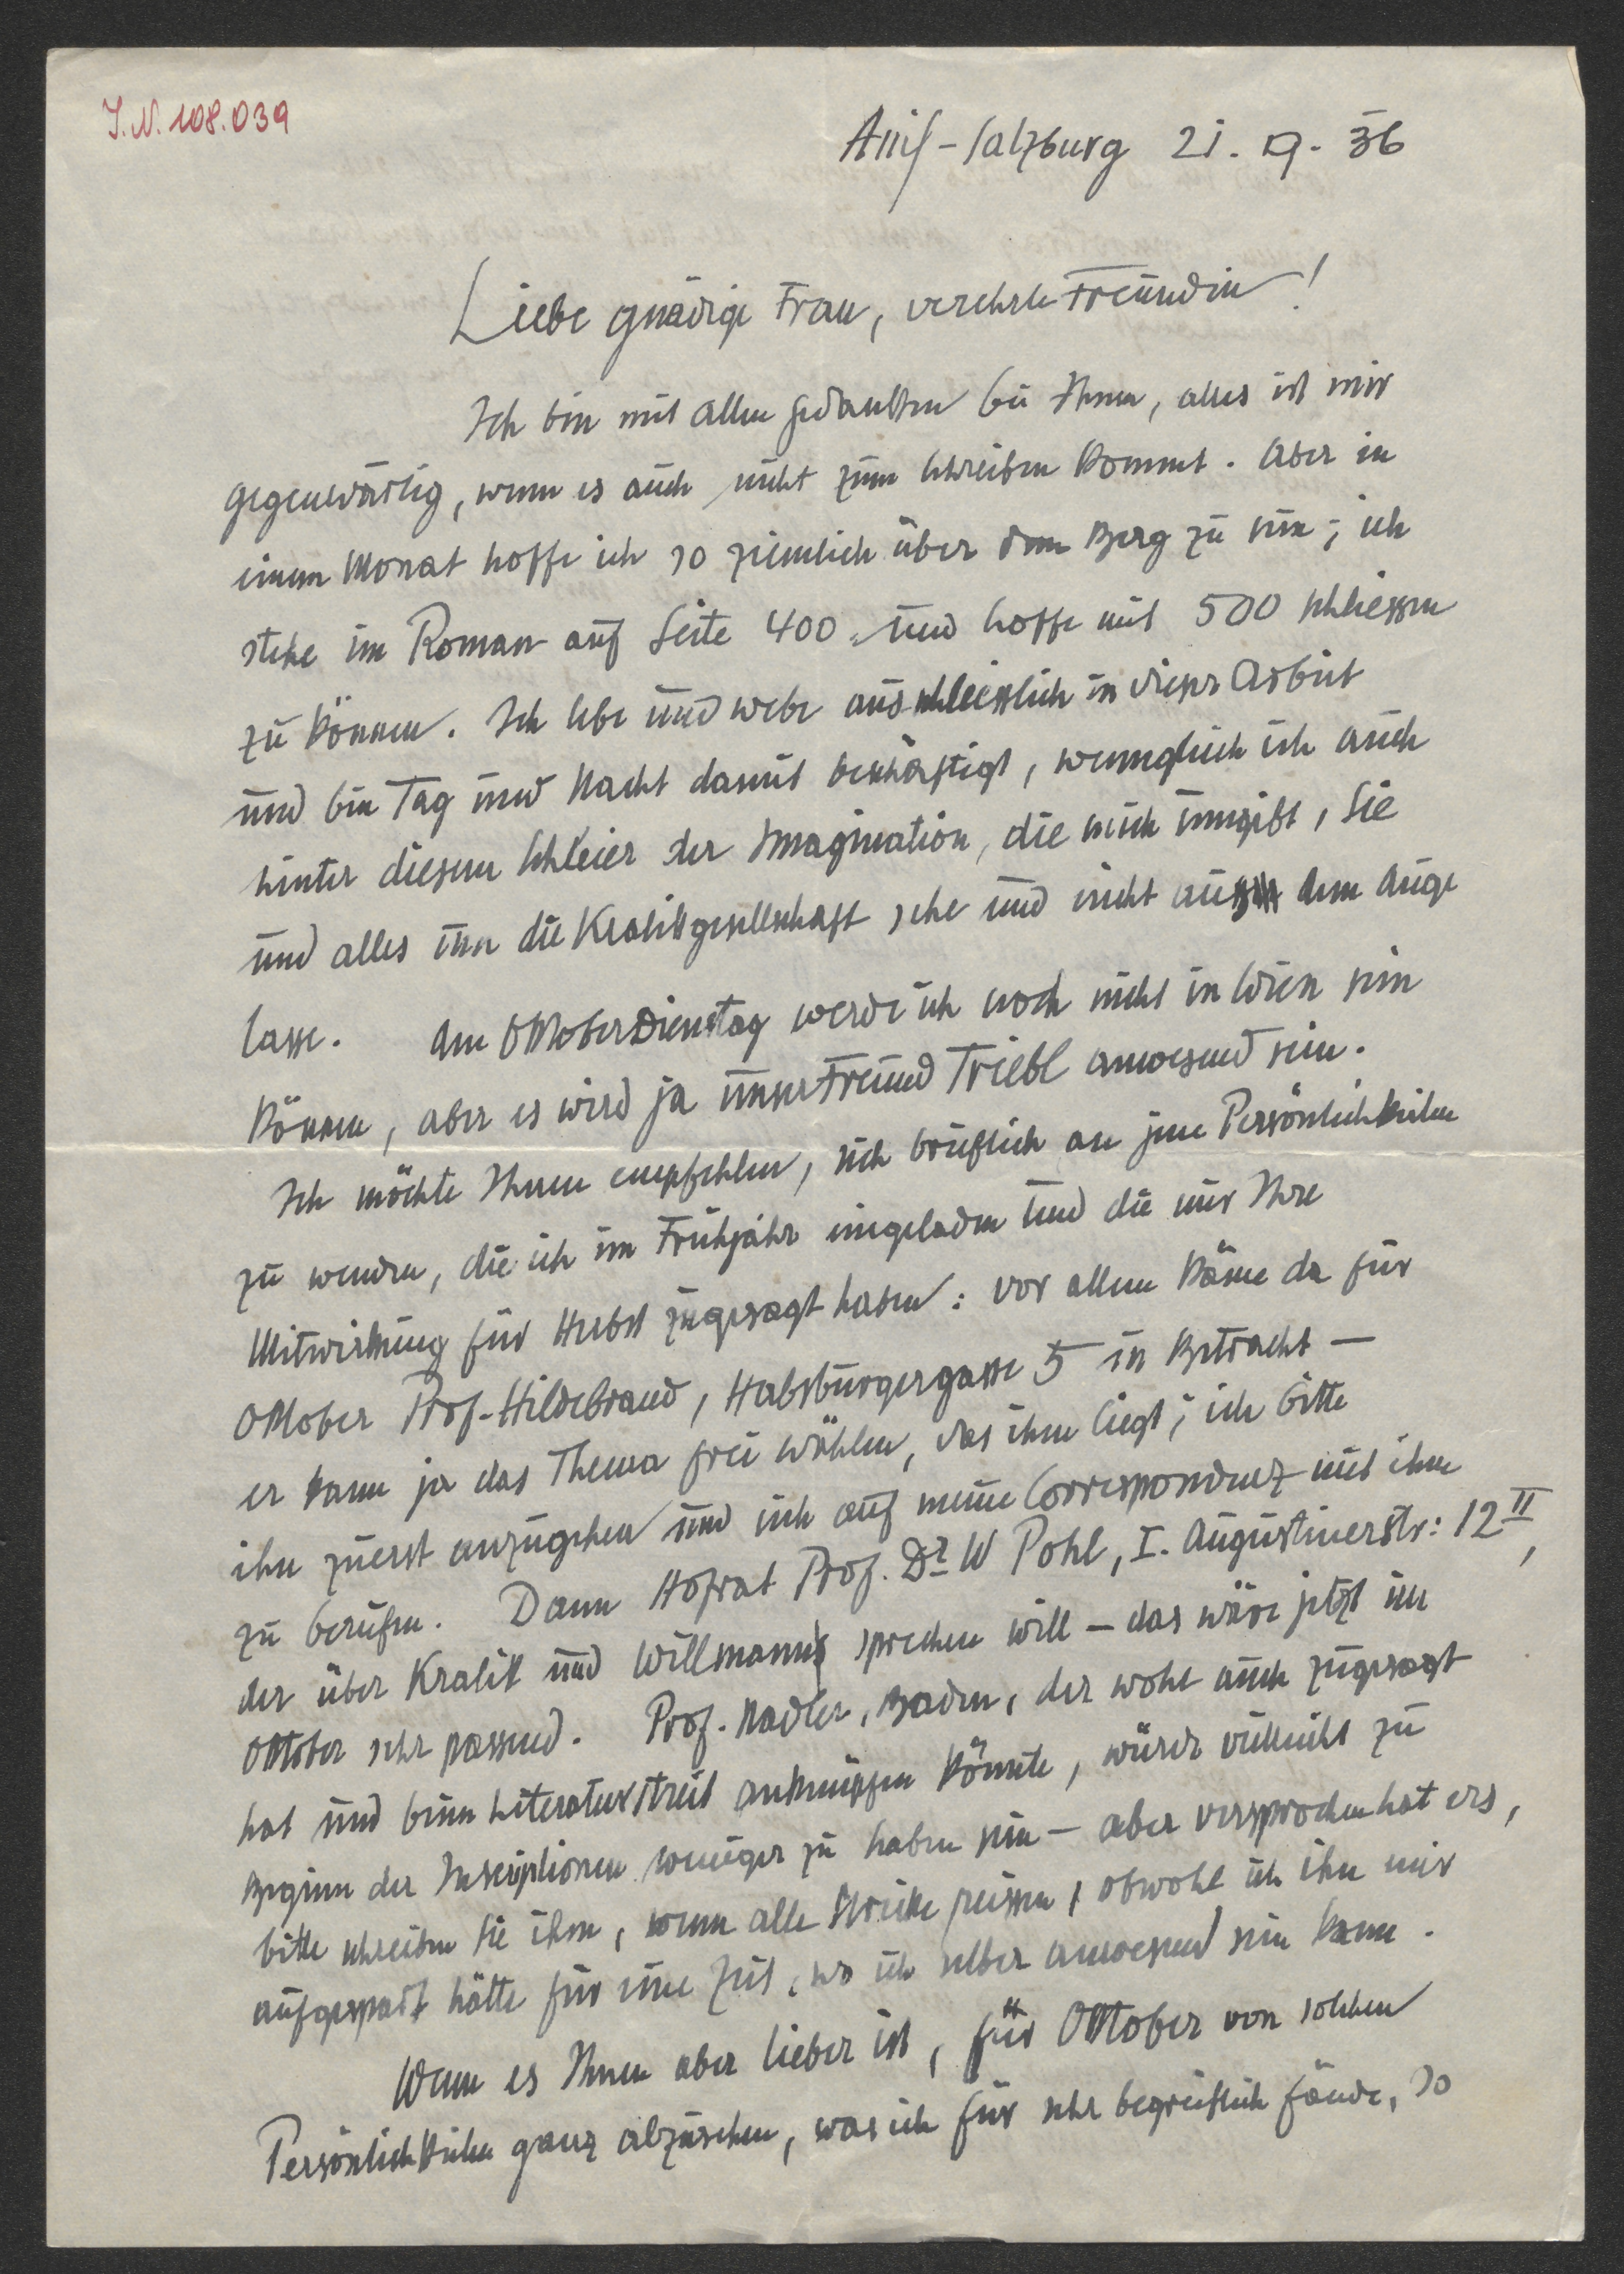 I.N. 108.039
Anif-Salzburg 21. 9. 36
Liebe gnädige Frau, verehrte Freundin!
Ich bin mit allen Gedanken bei Ihnen, alles ist mir
gegenwärtig, wenn es auch nicht zum Schreiben kommt. Aber in
einem Monat hoffe ich so ziemlich über dem Berg zu sein; ich
stehe im Roman auf Seite 400 und hoffe mit 500 schliessen
zu können. Ich lebe und webe ausschliesslich in dieser Arbeit
und bin Tag und Nacht damit beschäftigt, wenngleich ich auch
hinter diesem Schleier der Imagination, die mich umgibt, Sie
und alles um die Kralikgesellschaft sehe und nicht aus dem Auge
lasse. Am Oktoberdienstag werde ich noch nicht in Wien sein
können, aber es wird ja unser Freund Triebl anwesend sein.
Ich möchte Ihnen empfehlen, sich brieflich an jene Persönlichkeiten
zu wenden, die ich im Frühjahr eingeladen und die mir Ihre
Mitwirkung für Herbst zugesagt haben: vor allem käme da für
Oktober Prof. Hildebrand, Habsburgergasse 5 in Betracht –
er kann ja das Thema frei wählen, das ihm liegt; ich bitte
ihn zuerst anzugehen und sich auf meine Correspondenz mit ihm
zu berufen. Dann Hofrat Prof. Dr W Pohl, I. Augustinerstr: 12 II,
der über Kralik und Willmann sprechen will – das wäre jetzt im
Oktober sehr passend. Prof. Nadler, Baden, der wohl auch zugesagt
hat und beim Literaturstreit anknüpfen könnte, würde vielleicht zu
Beginn der Inscriptionen weniger zu haben sein – aber versprochen hat ers,
bitte schreiben Sie ihm, wenn alle Stricke reissen, obwohl ich ihn mir
aufgespart hätte für eine Zeit, wo ich selber anwesend sein kann.
Wenn es Ihnen aber lieber ist, für Oktober von solchen
Persönlichkeiten ganz abzusehen, was ich für sehr begreiflich fände, so